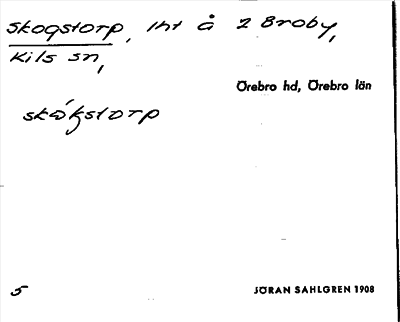 Skogstorp, lht å 2 Broby,
Kils sn,
Örebro hd, Örebro län
skókstorp
5
JÖRAN SAHLGREN 1908